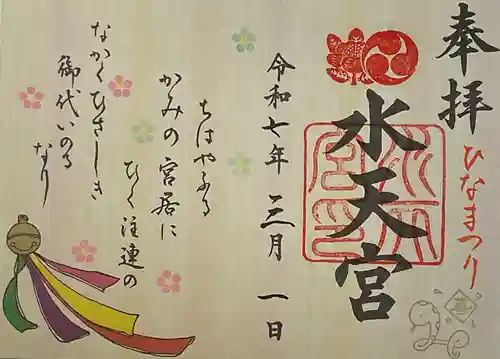 奉拝
ひなまつり
水天宮
令和七年三月一日
ちはやふる
かみの宮居に
ひく注連の
なかくひさしき
御代いのる
なり